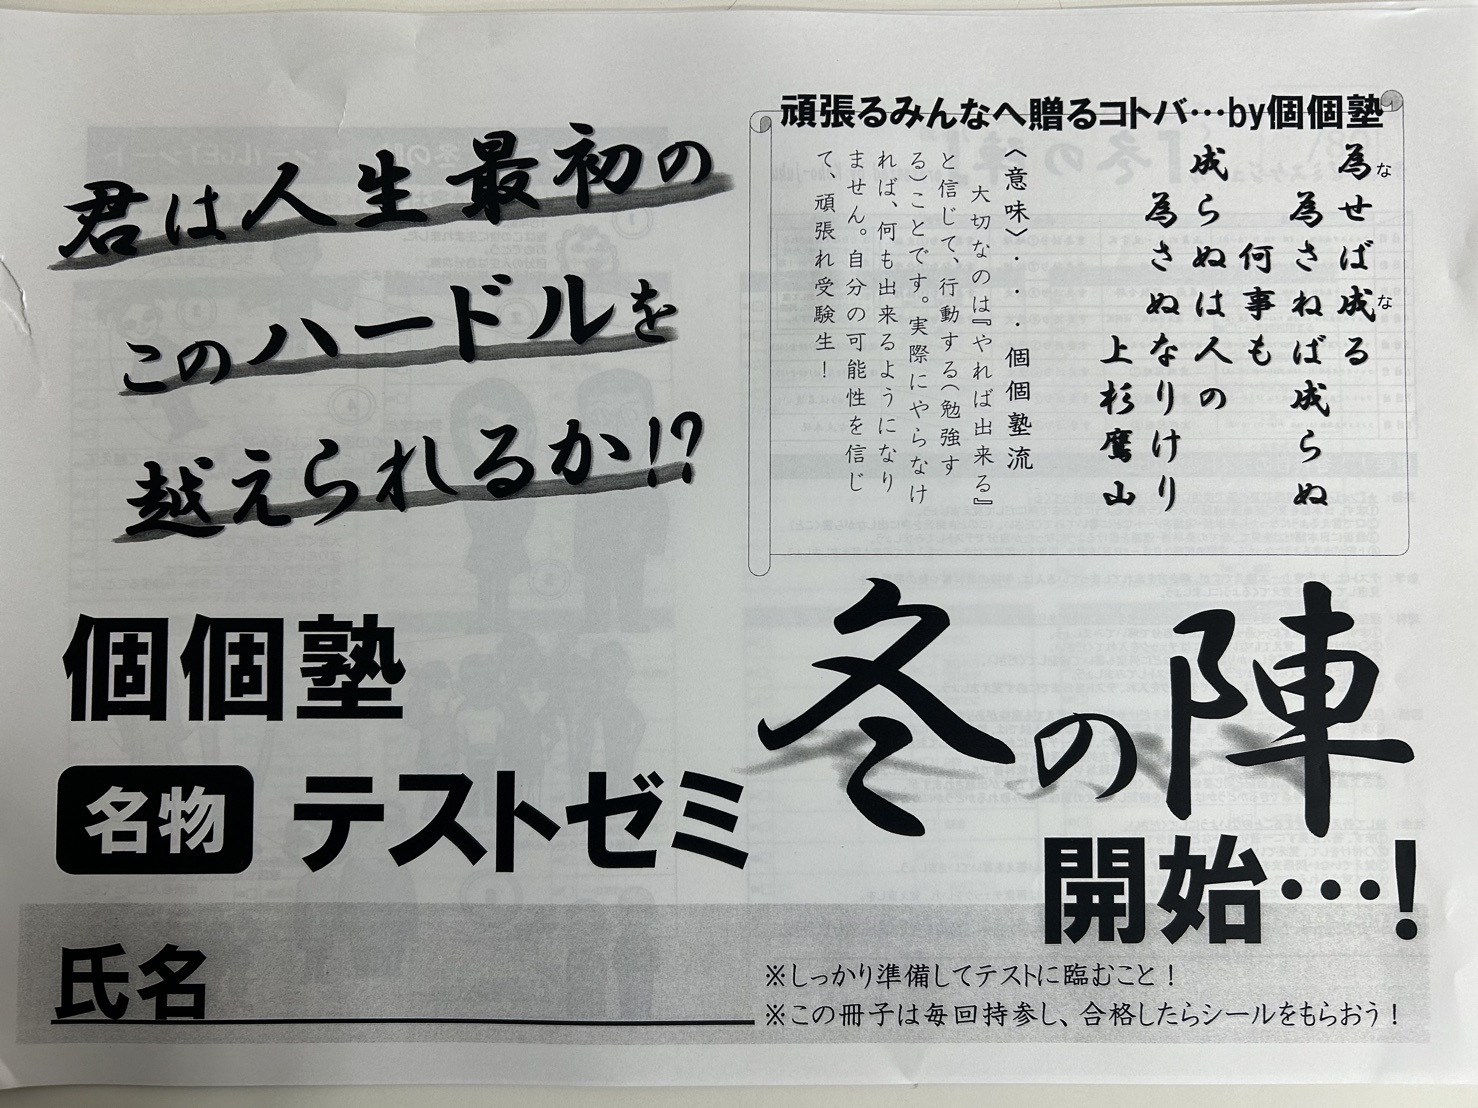 頑張るみんなへ贈るコトバ…by個個塾
為せば成る
為さねば成らぬ
何事も
成らぬは人の
為さぬなりけり
上杉鷹山
な
な
〈意味〉・・・個個塾流
大切なのは『やれば出来る』
と信じて、行動する(勉強す
る)ことです。実際にやらなけ
れば、何も出来るようになり
ません。自分の可能性を信じ
て、頑張れ受験生！
君は人生最初の
このハードルを
越えられるか!?
個個塾
名物 テストゼミ
冬の陣
開始…!
氏名
※しっかり準備してテストに臨むこと！
※この冊子は毎回持参し、合格したらシールをもらおう！